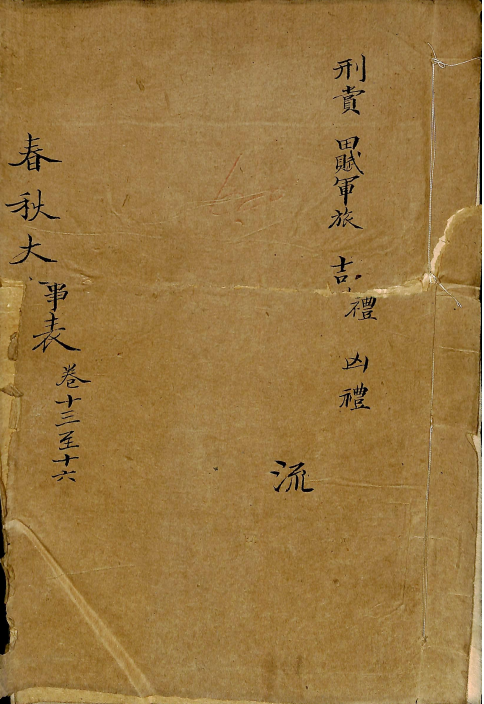 刑賞 田賦軍旅 吉禮 凶禮
流
春秋大事表 卷十三至十六